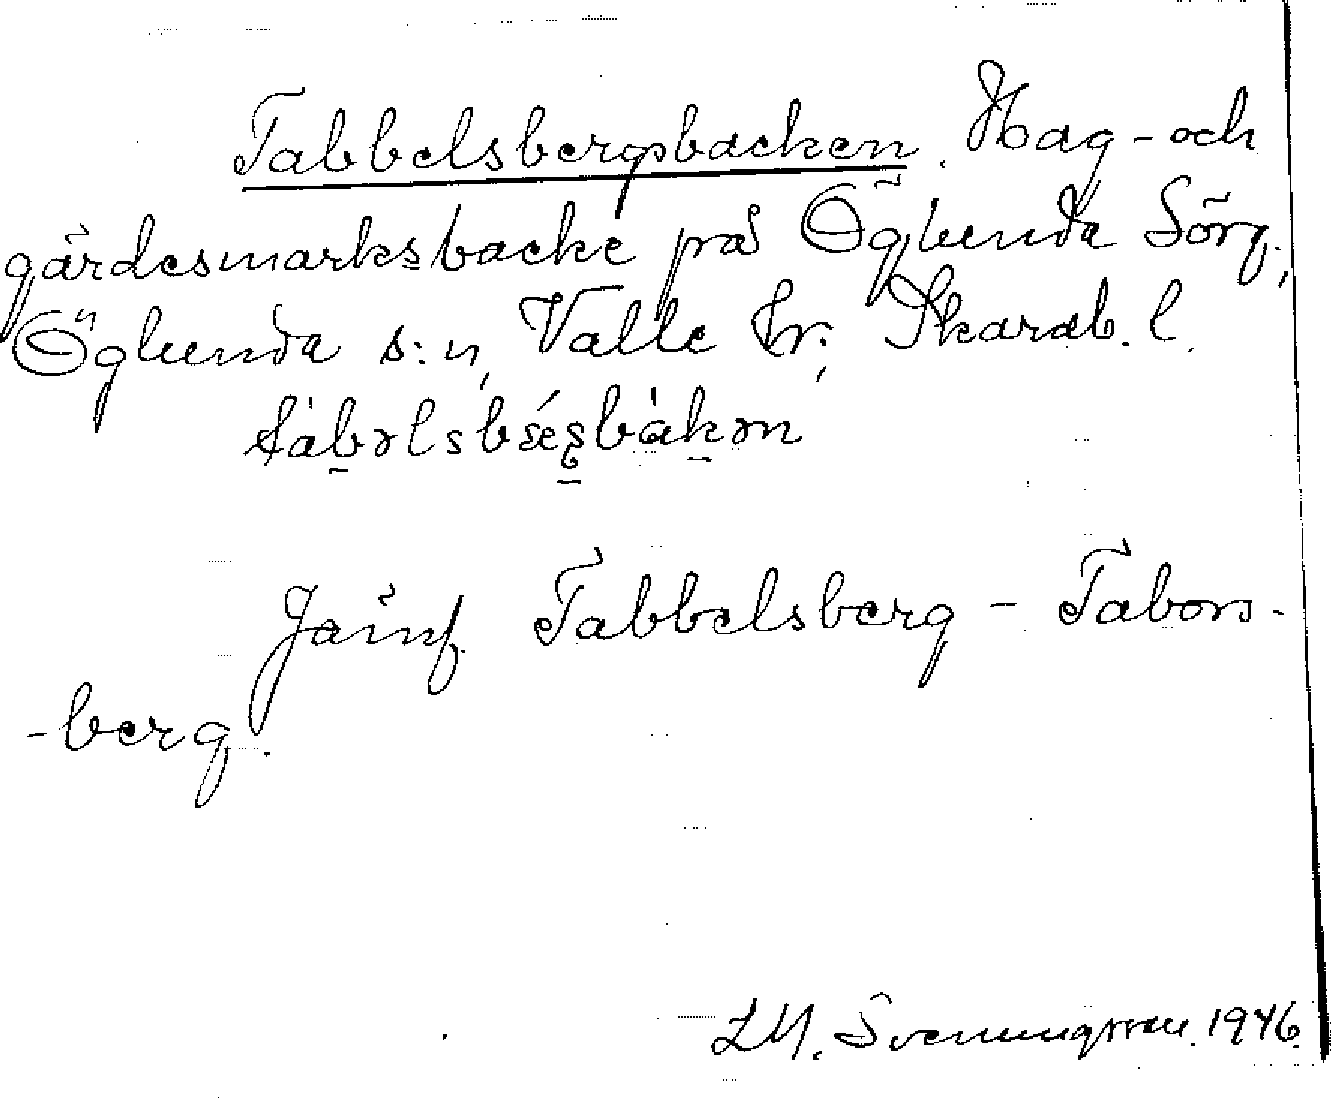 Tabbelsbergsbacken. Hag- och
gärdesmarksbacke på Öglunda Sörg.,
Öglunda s:n, Valle hr., Skarab. l.
tàbəlsbǽrgbàkən
Jämf. Tabbelsberg - Tabors-
-berg.
Svenungsson. 1946.